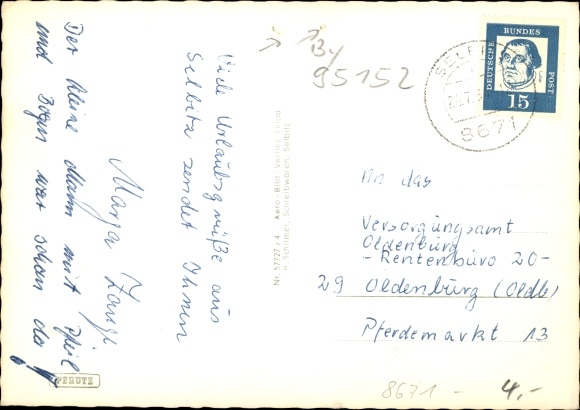 Viele Urlaubsgrüße aus
Selbitz sendet Ihnen
Marga
Der kleine Mann mit Pfeil
und Bogen war schon da!
PERUTZ
Nr. 57727/4 Aero-Bild-Verlag
H. Schirmer, Schreibwaren, Selbitz
By
95152
DEUTSCHE
BUNDES
POST
15
8671
An das
Versorgungsamt
Oldenburg
- Rentenbüro 20-
29 Oldenburg (Oldb)
Pferdemarkt 13
8671 -
4.-